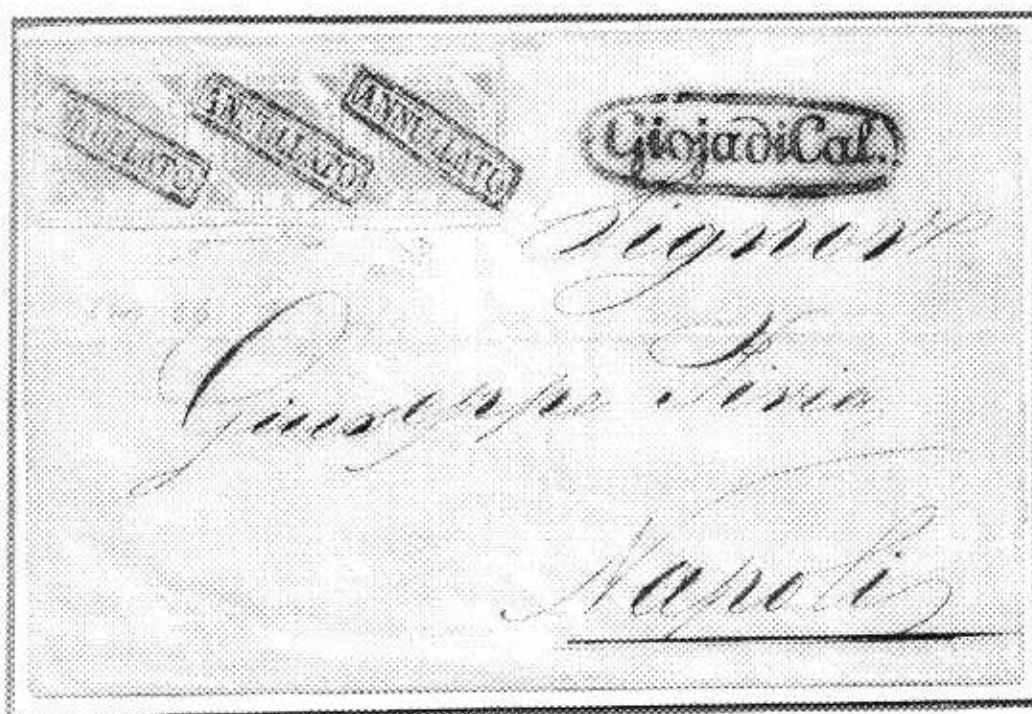 ANNULLATO
ANNULLATO
ANNULLATO
Gioja di Cal.
Signore
Giuseppe
Napoli